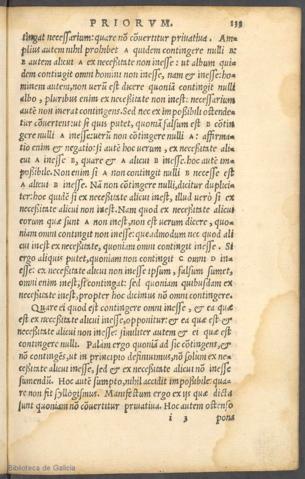 PRIORVM. 133
tingat necessarium: quare nō cōuertitur priuatiua. Am
plius autem nihil prohibet A quidem contingere nulli B:
B autem alicui A ex necessitate non inesse: ut album qui
dem contingit omni homini non inesse, nam & inesse: ho
minem autem, non uerū est dicere quoniā contingit nulli
albo, pluribus enim ex necessitate non inest: necessarium
autē non inerat contingens. Sed nec ex impoßibili ostende
tur cōuertens: ut si quis putet, quoniā falsum est B cōtin
gere nulli A inesse: uerū non cōtingere nulli A: affirma
tio enim & negatio: si autē hoc uerum, ex necessitate ali
cui A inesse B, quare & A alicui B inesse. hoc autē im
poßibile. Non enim si A non contingit nulli B necesse est
A alicui B inesse. Nā non cōtingere nulli, dicitur duplici
ter: hoc quidē si ex necessitate alicui inest, illud uerò si ex
necessitate alicui non inest. Nam quod ex necessitate alicui
eorum quæ sunt A non inest, non est uerum dicere, quo
niam omni contingit non inesse: quemadmodum nec quod ali
cui inest ex necessitate, quoniam omni contingit inesse. Si
ergo aliquis putet, quoniam non contingit C omni D in
esse: ex necessitate alicui non inesse ipsum, falsum sumet,
omni enim inest, si contingat: sed quoniam quibusdam ex
necessitate inest, propter hoc dicimus nō omni contingere.
Quare ei quod est contingere omni inesse, & ea quæ
est ex necessitate alicui inesse, opponitur: & ea quæ est ex
necessitate alicui non inesse: similiter autem & ei quæ est
contingere nulli. Palam ergo quoniā ad sic cōtingens, &
nō contingēs, ut in principio definiuimus, nō solum ex ne-
cessitate alicui inesse, sed & ex necessitate alicui nō inesse
sumendū. Hoc autē sumpto, nihil accidit impoßibile: qua-
re non fit syllogismus. Manifestum ergo ex ijs quæ dicta
sunt quoniam nō cōuertitur priuatiua. Hoc autem ostenso
i 3 posi
Biblioteca de Galicia